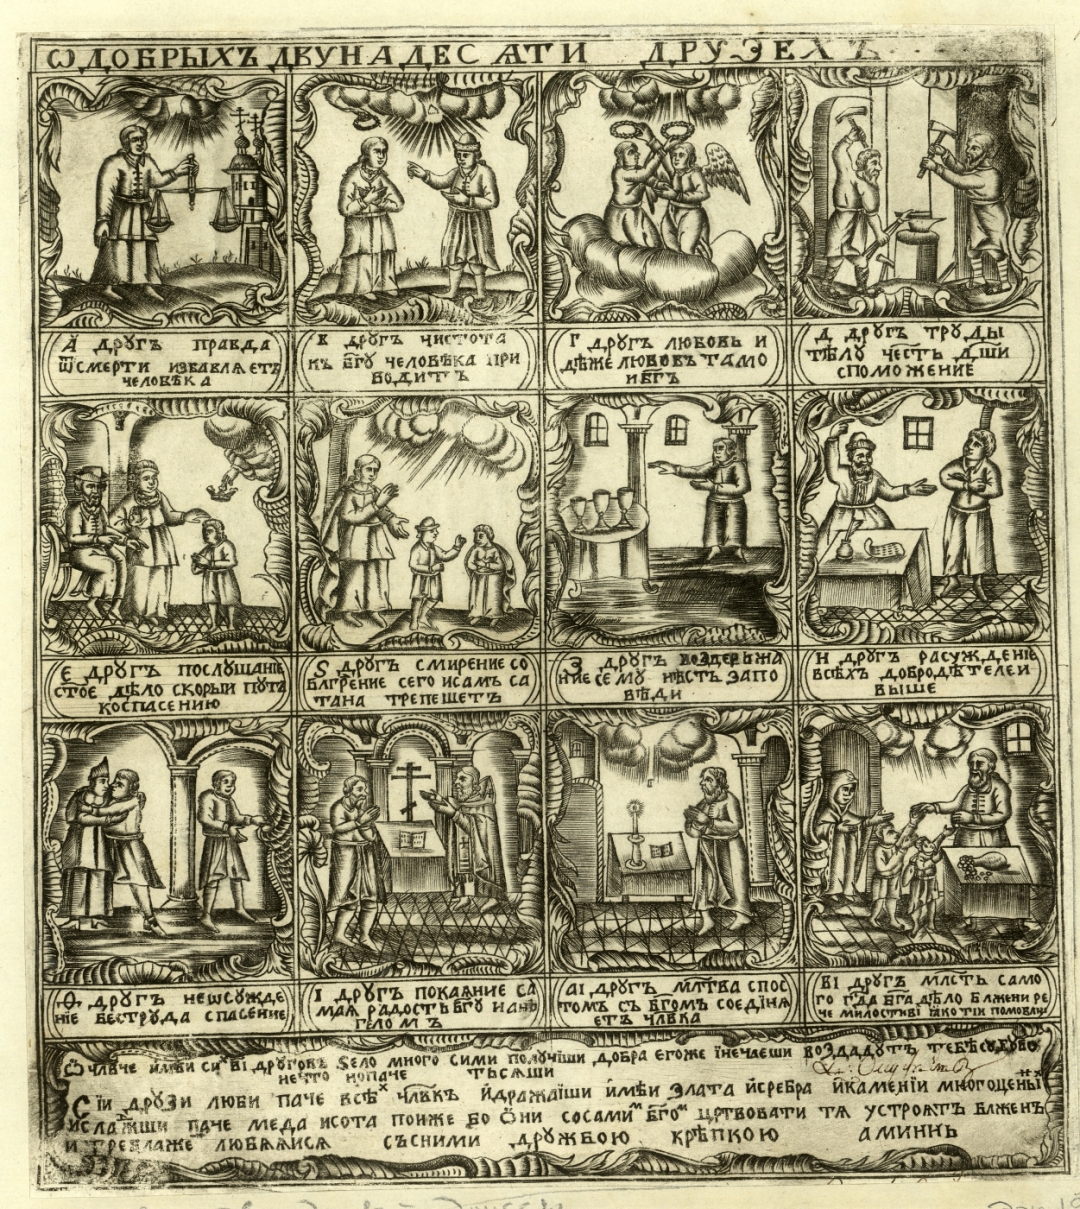 Ѡ ДОБРЫХЪ ДВУНАДЕСѦТИ ДРУЗЕХЪ
А ДРУГЪ ПРАВДА
Ѿ СМЕРТИ ИЗБАВЛѦЕТЪ
ЧЕЛОВѢКА
В ДРУГЪ ЧИСТОТА
КЪ БГУ ЧЕЛОВѢКА ПРИ
ВОДИТЪ
Г ДРУГЪ ЛЮБОВЬ И
ДѢЖЕ ЛЮБОВЪ ТАМО
И БГЪ
Д ДРУГЪ ТРУДЫ
ТѢЛУ ЧЕСТЬ ДШИ
СПОМОЖЕНИЕ
Е ДРУГЪ ПОСЛУШАНІЕ
СТОЕ ДѢЛО СКОРЫИ ПУТЬ
КОСПАСЕНИЮ
Ѕ ДРУГЪ СМИРЕНИЕ СО
БЛГРЕНИЕ СЕГО ИСАМЪ СА
ТАНА ТРЕПЕЩЕТЪ
З ДРУГЪ ВОЗДЕРЬЖА
НИЕ СЕМУ НѢСТЬ ЗАПО
ВѢДИ
И ДРУГЪ РАСУЖДЕНІЕ
ВСѢХЪ ДОБРОДѢТЕЛЕИ
ВЫШЕ
Ѳ ДРУГЪ НЕѠСУЖДЕ
НІЕ БЕСТРУДА СПАСЕНИЕ
І ДРУГЪ ПОКАѦНИЕ СА
МАЯ РАДОСТЬ БГУ И АНЬ
ГЕЛОМЪ
АІ ДРУГЪ МЛТВА СПОС
ТОМЪ СЪ БГОМЪ СОЕДІНЯ
ЕТЪ ЧЛВКА
ВІ ДРУГЪ МЛСТЬ САМО
ГО ГДА БГА ДѢЛО БЛЖЕНИ РЕ
ЧЕ МИЛОСТИВІ ꙖКО ТІИ ПОМОВЛИ
Ѽ ЧЛВЧЕ ИМѢИ СИХ ВІ ДРУГОВЪ ЅЕЛО МНОГО СИМИ ПОЛУЧІШИ ДОБРА ЕГОЖЕ ІНЕЧАЕШИ ВОЗДАДУТЪ ТЕБѢ
НЕЧТО ТЬСѦЩИ
СІИ ДРУЗИ ЛЮБИ ПАЧЕ ВСѢХ ЧЛВКЪ ИДРАЖАІШИ ИМѢИ ЗЛАТА ИСРЕБРА ИКАМЕНІИ МНОГОЦЕНЫХ
ПАЧЕ МЕДА ИСОТА ПОИЖЕ БО ѺНИ СОСАМИМ БГОМ ЦРТВОВАТИ ТѦ УСТРОѦТЪ БЛЖЕНЪ
И ТРЕБЛАЖЕ ЛЮБѦИСЯ СЪСНИМИ ДРУЖБОЮ КРѢПКОЮ АМИННЬ